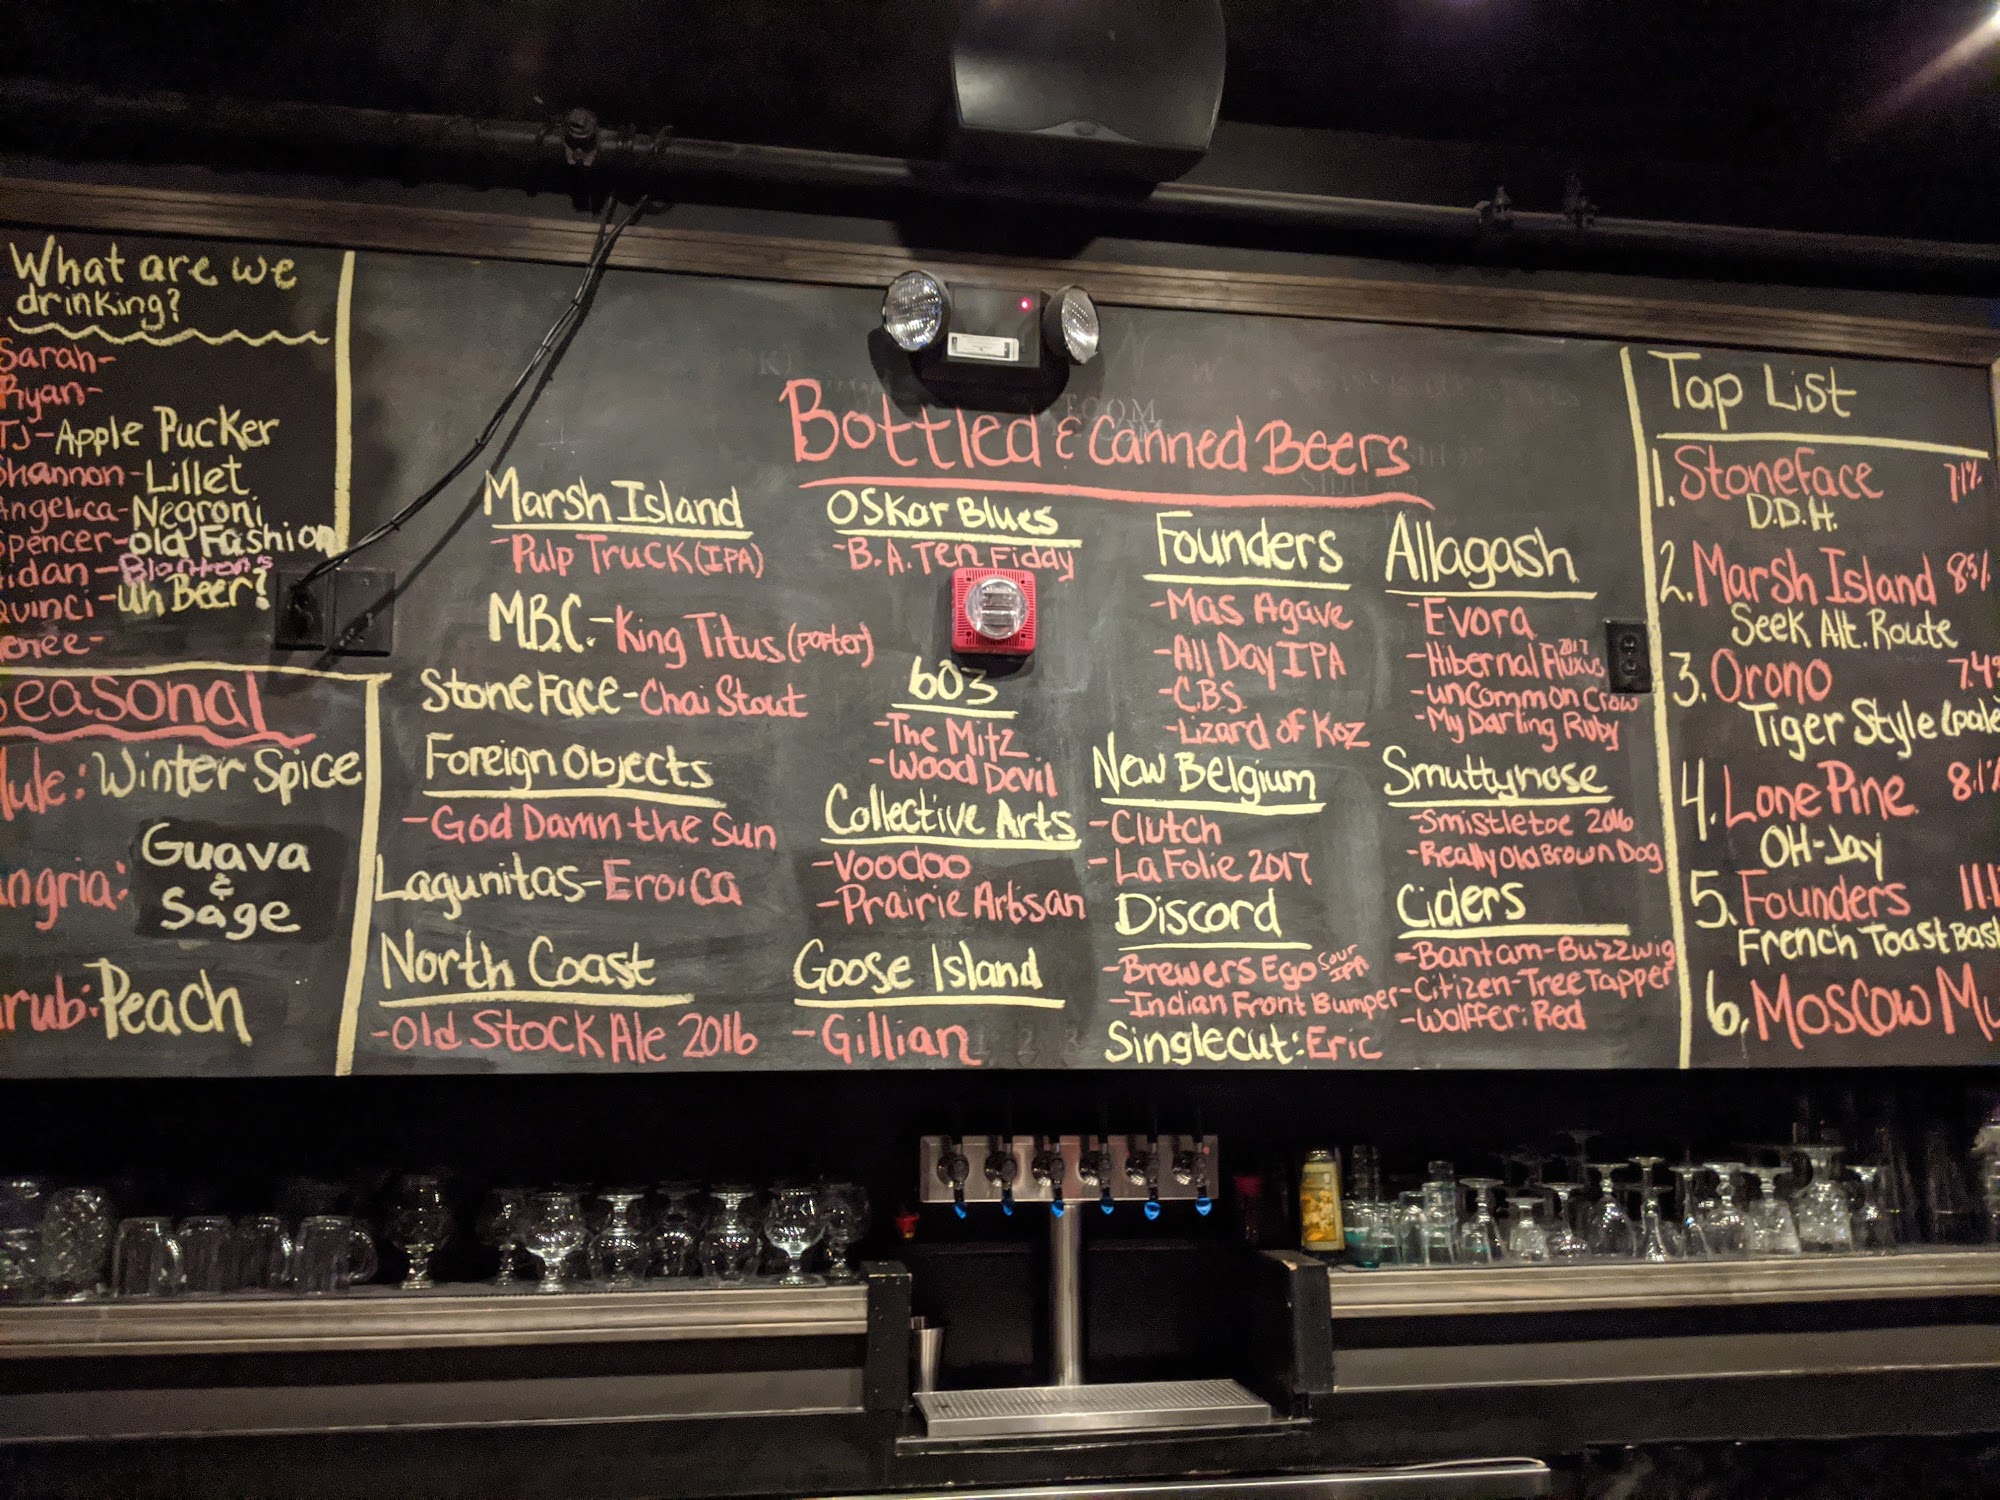 What are we
drinking?
Sarah-
Ryan-
TJ-Apple Pucker
Shannon-Lillet
Angelica-Negroni
Spencer-Old Fashion
idan-Blanton's
Quinci-uh Beer?
enee-
Seasonal
ule: Winter Spice
ngria: Guava
&
Sage
rub: Peach
Bottled & Canned Beers
Marsh Island
-Pulp Truck (IPA)
M.B.C.-King Titus (porter)
Stoneface-Chai Stout
Foreign Objects
-God Damn the Sun
Lagunitas-Eroica
North Coast
-Old Stock Ale 2016
Oskar Blues
-B.A. Ten Fiddy
603
-The Mitz
-Wood Devil
Collective Arts
-Voodoo
-Prairie Artisan
Goose Island
-Gillian
Founders
-Mas Agave
-All Day IPA
-C.B.S.
-Lizard of Koz
New Belgium
-Clutch
-La Folie 2017
Discord
-Brewers Ego Sour IPA
-Indian Front Bumper
Singlecut: Eric
Allagash
-Evora
-Hibernal Fluxus 2017
-uncommon Crow
-My Darling Ruby
Smuttynose
-Smistletoe 2016
-Really Old Brown Dog
Ciders
-Bantam-Buzzwig
-Citizen-Tree Tapper
-Wolffer: Red
Tap List
1. Stoneface 7.1%
D.D.H.
2. Marsh Island 8.5%
Seek Alt. Route
3. Orono 7.4%
Tiger Style (pale
4. Lone Pine 8.1%
OH-Jay
5. Founders 11.1
French Toast Bast
6. Moscow Mu